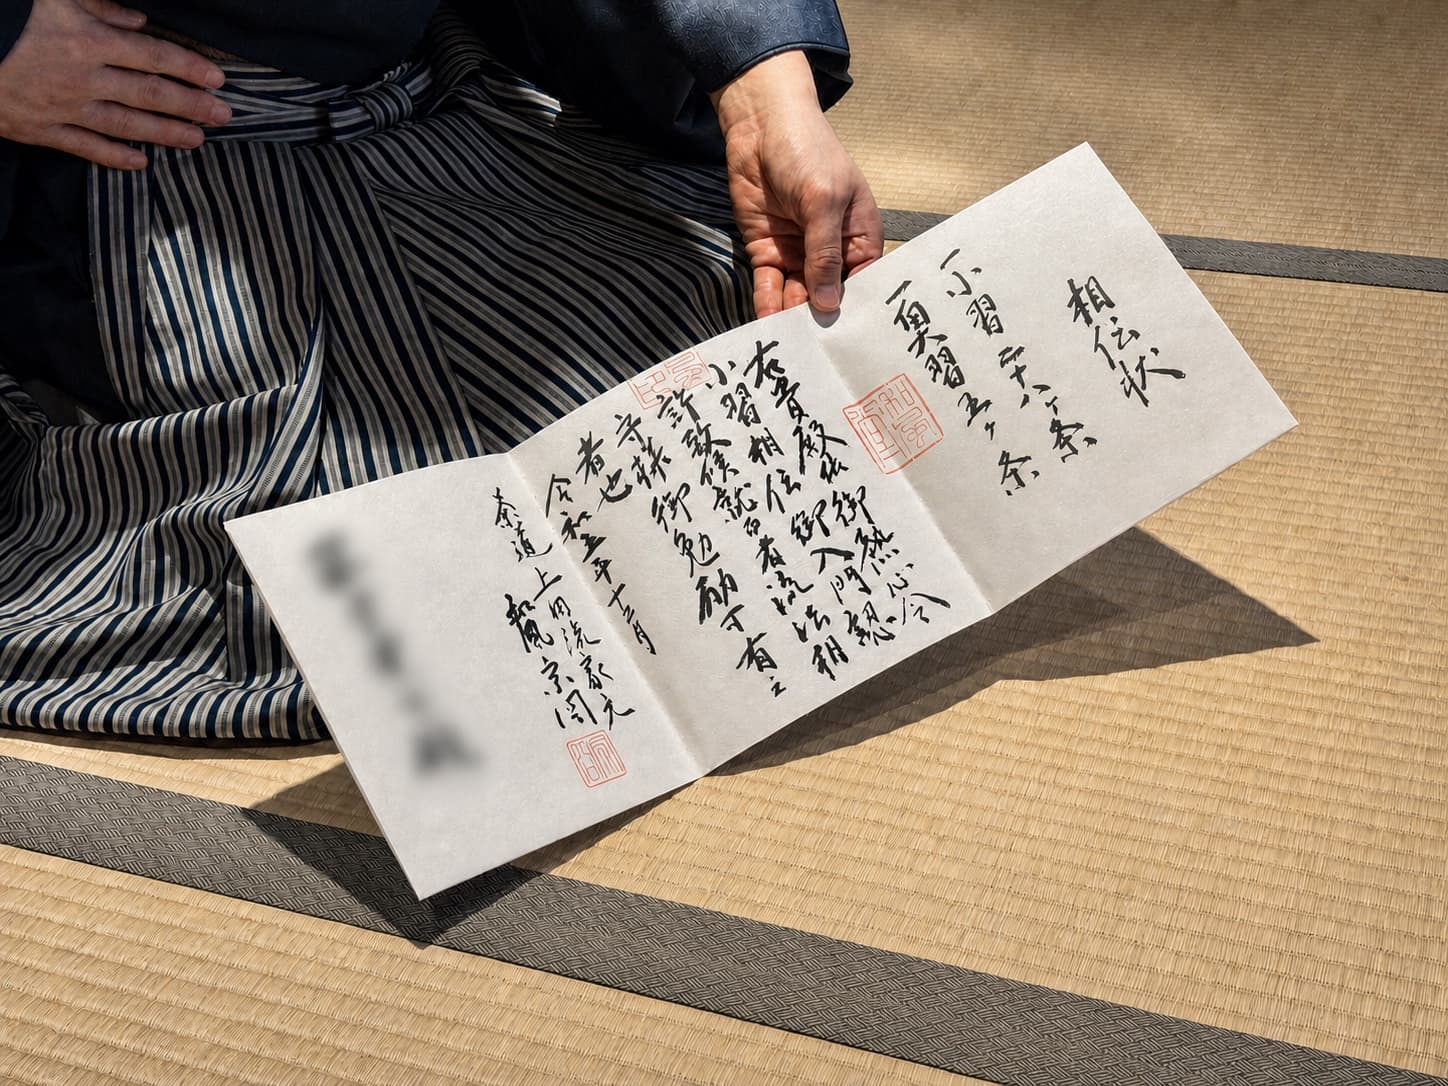 相伝状
一小習二十八ヶ条
一奥習五ヶ条
右貴殿依御熱心令
小習相伝御入門認
許致候就而者流法相
守様御勉励可有之
者也
令和五年十二月
茶道上田流家元
和風宗冏